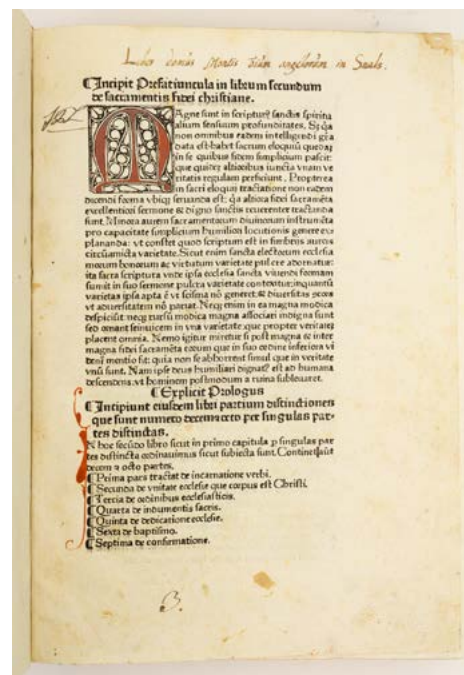 Liber domus Montis Omnium angelorum in Snals.
⸿Incipit Prefatiuncula in librum secundum
de sacramentis fidei christiane.
MAgne sunt in scripturę sanctis spirita
alium sensuum profunditates. Et
non omnibus eadem intelligendi
data est habet sacrum eloquiū quedā
in se quibus fidem simplicium pascit:
que quidē altioribus iuncta vnam ve
ritatis regulam perficiunt. Propterea
in sacri eloquii tractatione non eadem
dicendi forma vbiqȝ seruanda est: altiora fidei sacramēta
excellentiori sermone & digno sanctis reuerenter tractanda
sunt. Minora autem sacramentorum diuinorum instrumēta
pro capacitate simplicium humiliori locutionis genere ex
plananda: vt constet quod scriptum est in fimbriis aureis
circūamicta varietate. Sicut enim sancta electorum ecclesia
morum bonorum & virtutum varietate pulcre adornatur:
ita sacra scriptura vnde ipsa ecclesia sancta viuendi formam
sumit in suo sermone pulcra varietate contexitur: inquantū
varietas ipsa apta ē vt scisma nō generet: & diuersitas
vt aduersitatem nō pariat. Neqȝ enim in ea magna modica
despicit neqȝ rursū modica magna associari indigna sunt
sed ornant seinuicem in vna varietate que propter veritatē
placent omnia. Nemo igitur miretur si post magna & inter
magna fidei sacramēta eorum que in suo ordine inferiora
mentio fit: quia non se abhorrent simul que in veritate
vnū sunt. Nam ipse deus humiliari dignatꝰ est ad humana
descendens. vt hominem postmodum a ruina subleuaret.
⸿Explicit Prologus
⸿Incipiunt eiusdem libri partium distinctiones
que sunt numero decemocto per singulas par
tes distinctas.
IN hoc secūdo libro sicut in primo capitula p singulas par
tes distincta ordinauimus sicut subiecta sunt.
decem & octo partes.
⸿Prima pars tractat de incarnatione verbi.
⸿Secunda de vnitate ecclesie que corpus est Christi.
⸿Tercia de ordinibus ecclesiasticis.
⸿Quarta de indumentis sacris.
⸿Quinta de dedicatione ecclesie.
⸿Sexta de baptismo.
⸿Septima de confirmatione.
B.